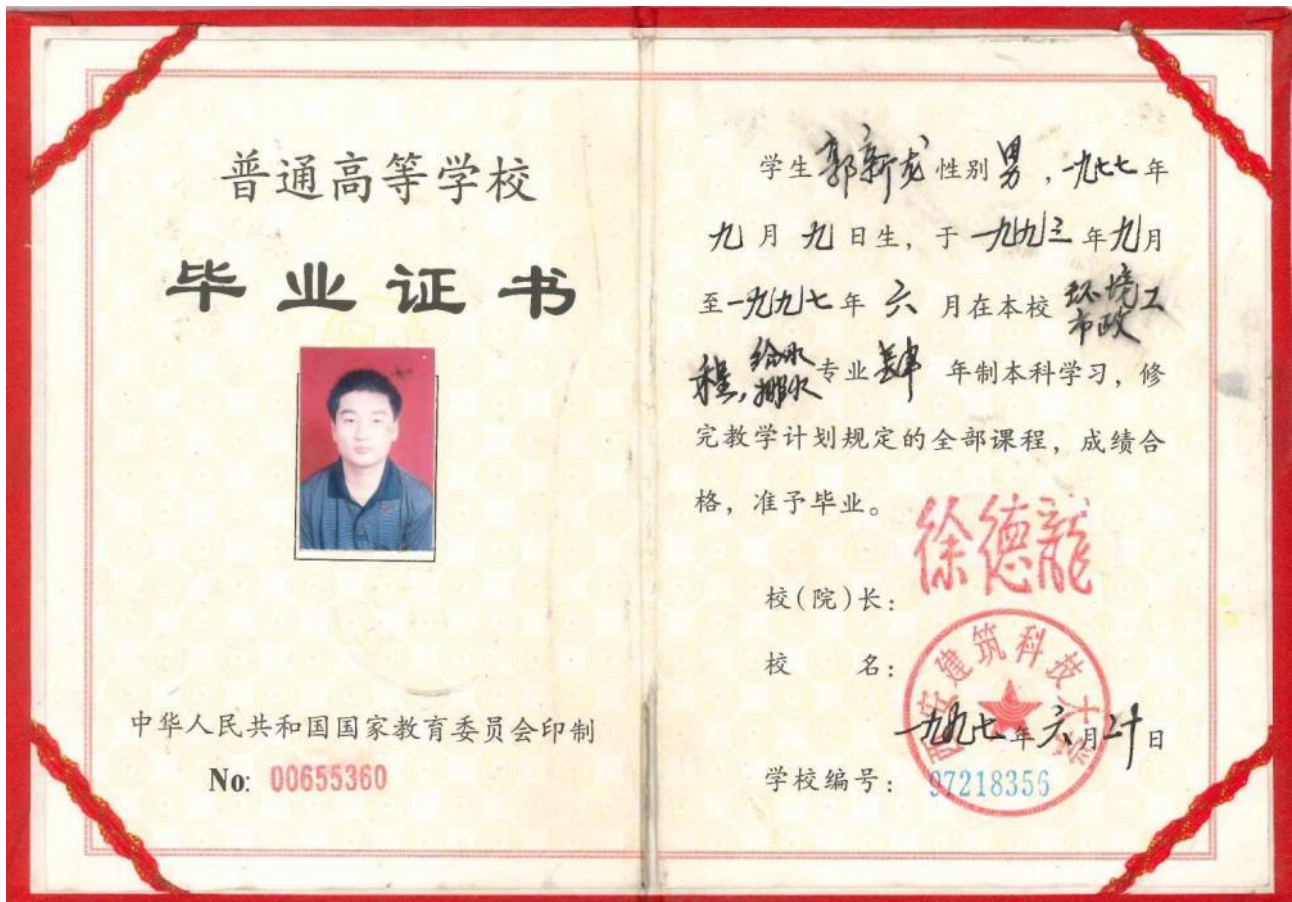 普通高等学校
毕业证书
中华人民共和国国家教育委员会印制
No: 00655360
学生郭新龙性别男,一九七七年
九月九日生,于一九九三年九月
至一九九七年六月在本校环境工
市政
程,给水
排水专业肆年制本科学习,修
完教学计划规定的全部课程,成绩合
格,准予毕业。
徐德龍
校(院)长:
西安建筑科技大学
校名:
一九九七年六月廿日
学校编号: 97218356